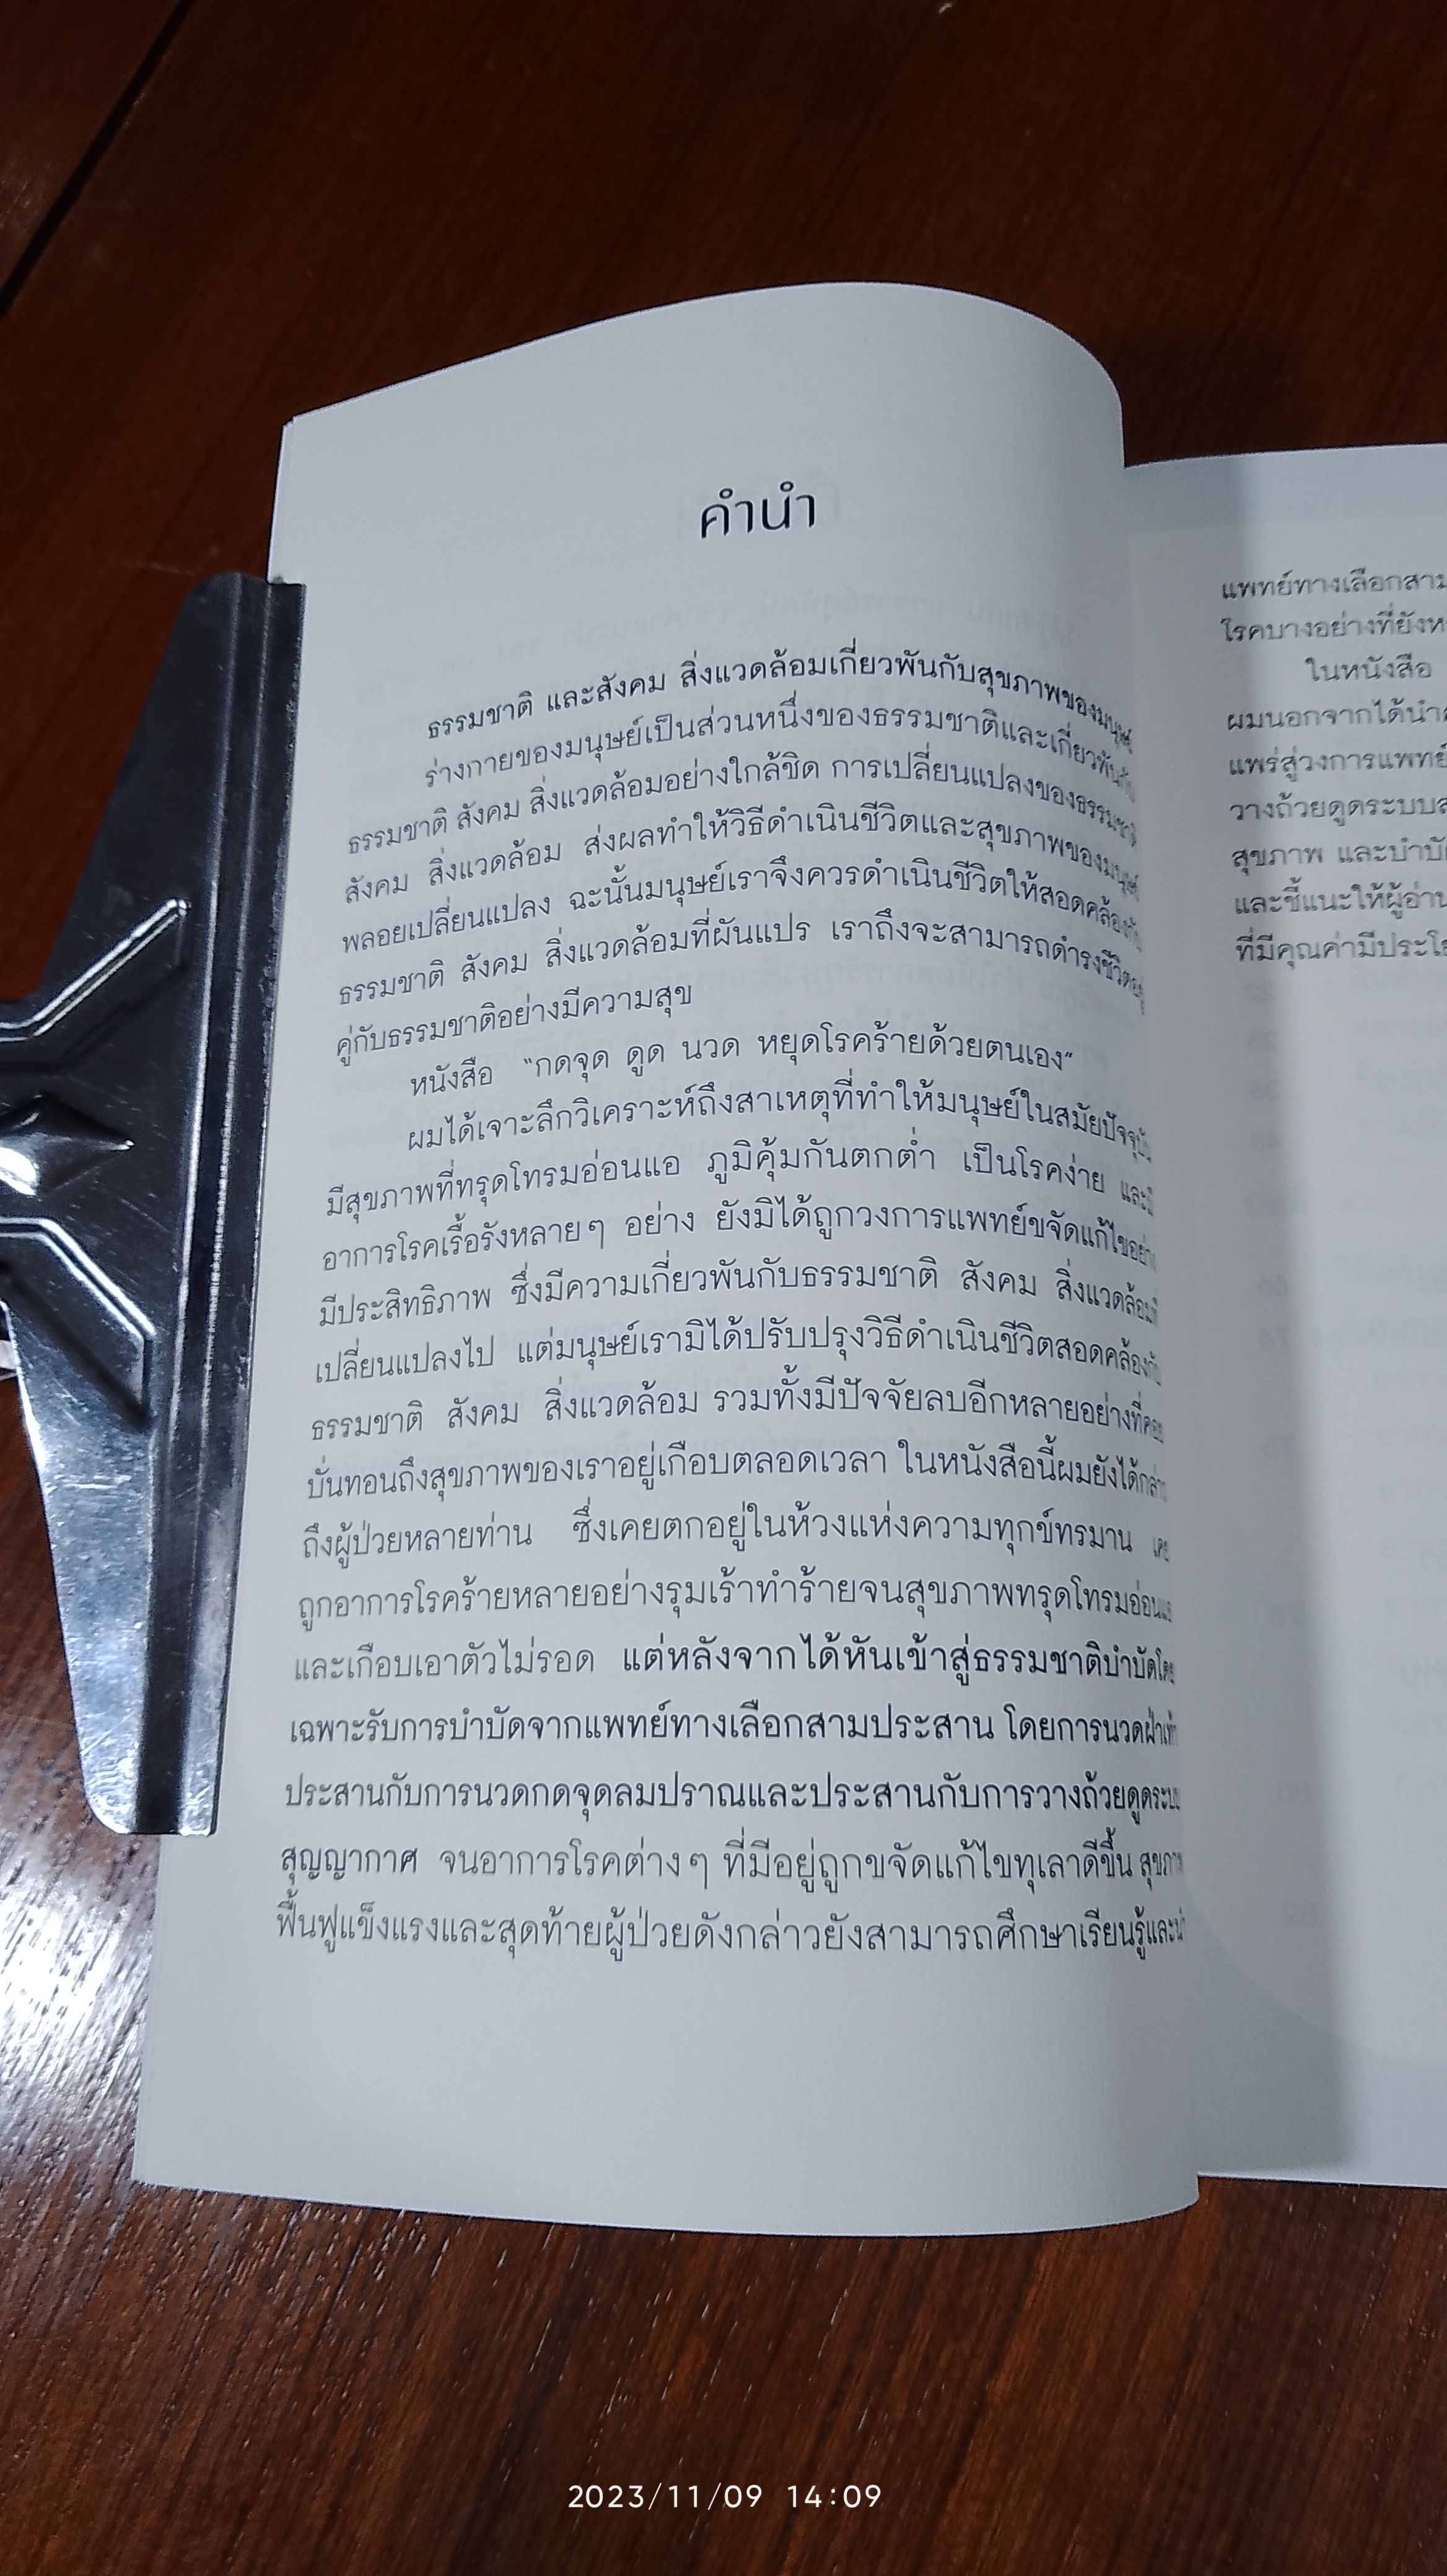 คำนำ
ธรรมชาติ และสังคม สิ่งแวดล้อมเกี่ยวพันกับสุขภาพของมนุษย์
ร่างกายของมนุษย์เป็นส่วนหนึ่งของธรรมชาติและเกี่ยวพันกับ
ธรรมชาติ สังคม สิ่งแวดล้อมอย่างใกล้ชิด การเปลี่ยนแปลงของธรรมชาติ
สังคม สิ่งแวดล้อม ส่งผลทำให้วิธีดำเนินชีวิตและสุขภาพของมนุษย์
พลอยเปลี่ยนแปลง ฉะนั้นมนุษย์เราจึงควรดำเนินชีวิตให้สอดคล้องกับ
ธรรมชาติ สังคม สิ่งแวดล้อมที่ผันแปร เราถึงจะสามารถดำรงชีวิตอยู่
คู่กับธรรมชาติอย่างมีความสุข
หนังสือ "กดจุด ดูด นวด หยุดโรคร้ายด้วยตนเอง"
ผมได้เจาะลึกวิเคราะห์ถึงสาเหตุที่ทำให้มนุษย์ในสมัยปัจจุบัน
มีสุขภาพที่ทรุดโทรมอ่อนแอ ภูมิคุ้มกันตกต่ำ เป็นโรคง่าย
อาการโรคเรื้อรังหลายๆ อย่าง ยังมิได้ถูกวงการแพทย์ขจัดแก้ไขอย่าง
มีประสิทธิภาพ ซึ่งมีความเกี่ยวพันกับธรรมชาติ สังคม สิ่งแวดล้อมที่
เปลี่ยนแปลงไป แต่มนุษย์เรามิได้ปรับปรุงวิธีดำเนินชีวิตสอดคล้องกับ
ธรรมชาติ สังคม สิ่งแวดล้อม รวมทั้งมีปัจจัยลบอีกหลายอย่างที่คอย
บั่นทอนถึงสุขภาพของเราอยู่เกือบตลอดเวลา ในหนังสือนี้ผมยังได้กล่าว
ถึงผู้ป่วยหลายท่าน ซึ่งเคยตกอยู่ในห้วงแห่งความทุกข์ทรมาน เคย
ถูกอาการโรคร้ายหลายอย่างรุมเร้าทำร้ายจนสุขภาพทรุดโทรมอ่อนแอ
และเกือบเอาตัวไม่รอด แต่หลังจากได้หันเข้าสู่ธรรมชาติบำบัดโดย
เฉพาะรับการบำบัดจากแพทย์ทางเลือกสามประสาน โดยการนวดฝ่าเท้า
ประสานกับการนวดกดจุดลมปราณและประสานกับการวางถ้วยดูดระบบ
สุญญากาศ จนอาการโรคต่างๆ ที่มีอยู่ถูกขจัดแก้ไขทุเลาดีขึ้น สุขภาพ
ฟื้นฟูแข็งแรงและสุดท้ายผู้ป่วยดังกล่าวยังสามารถศึกษาเรียนรู้และนำ
แพทย์ทางเลือกสาม
โรคบางอย่างที่ยัง
ในหนังสือ
ผมนอกจากได้นำ
แพร่สู่วงการแพทย์
วางถ้วยดูดระบบ
สุขภาพ และบำบัด
และชี้แนะให้ผู้อ่าน
ที่มีคุณค่ามีประโย
2023/11/09 14:09